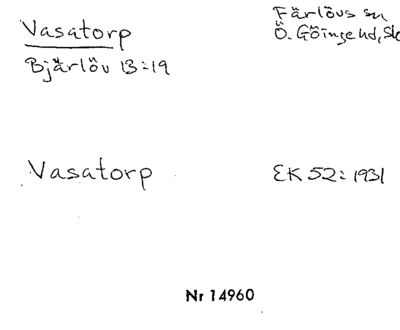 Vasatorp
Bjärlöv 13:19
Färlövs sn
Ö. Göinge hd, Sk
Vasatorp
EK 52: 1931
Nr 14960